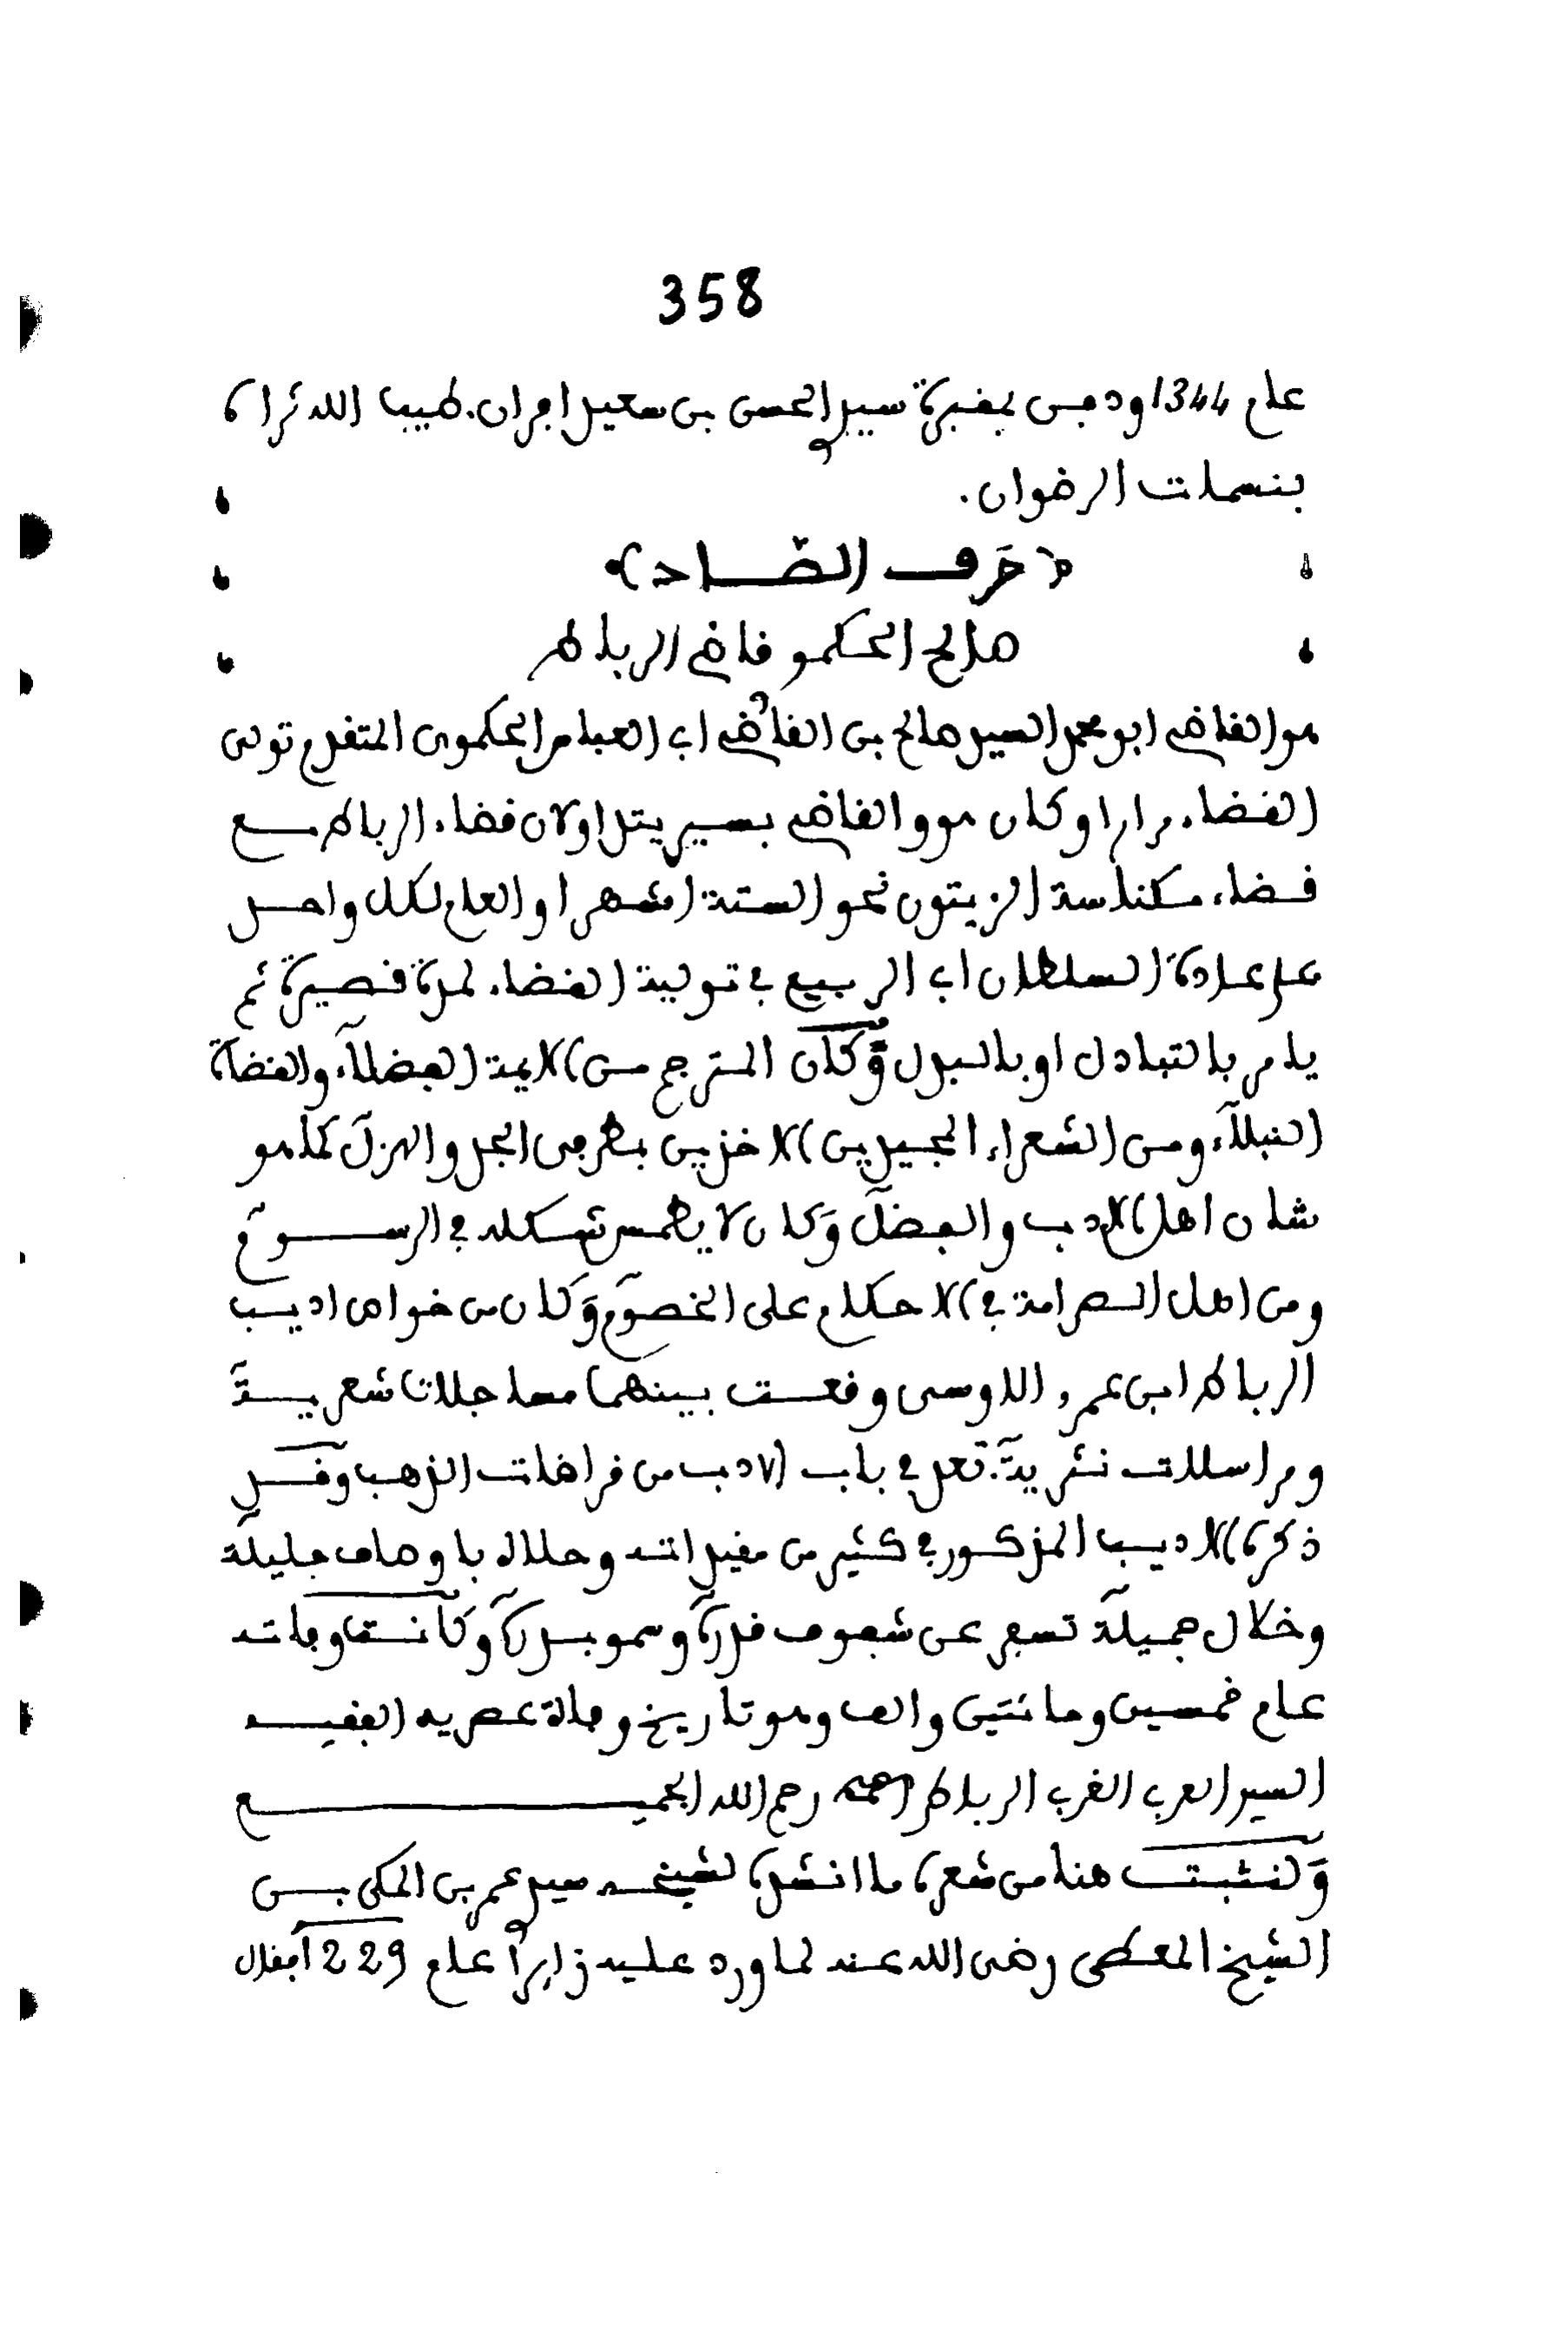 358
عام 1344 ودفن بمقبرة سيدي الحسن بن سعيد افران. طيب الله ثراه
بنسمات الرضوان.
﴿حَرف الضّاد﴾
صالح الحكموي قاضي الرباط
هو القاضي ابو محمد السيد صالح بن القاضي ابي العباس الحكموي المتقدم تولى
القضاء مرارا وكان هو والقاضي بسير يتداولان قضاء الرباط مع
قضاء مكناسة الزيتون نحو الستة اشهر او العام لكل واحد
على عادة السلطان ابي الربيع في تولية القضاء لمدة قصيرة ثم
يامر بالتبادل او بالبدل وَكان المترجم من الايمة الفضلاء والقضاة
النبلاء ومن الشعراء المجيدين الاخذين بطرفي الجد والهزل كما هو
شان اهل الادب والفضل وَكان لا يطمس شكله في الرسوم
ومن اهل الصرامة في الاحكام على الخصوم وَكان من خواص اديب
الرباط ابن عمرو الاوسي وقعت بينهما مساجلات شعرية
ومراسلات نثرية. تعد في باب الادب من قراضات الذهب وقد
ذكره الاديب المذكور في كثير من مقيداته وحلاه باوصاف جليلة
وخلال جميلة تسفر عن شفوف قدره وسمو بدره وكانت وفاته
عام خمسين ومائتين والف وهو تاريخ وفاة عصريه الفقيه
السيد العربي الغربي الرباطي رحم الله الجميع
وَلنثبت هنا من شعره ما انشده لشيخه سيدي عمر بن المكي بن
الشيخ المعطى رضى الله عنه لما ورد عليه زايرا عام 229 1فقال